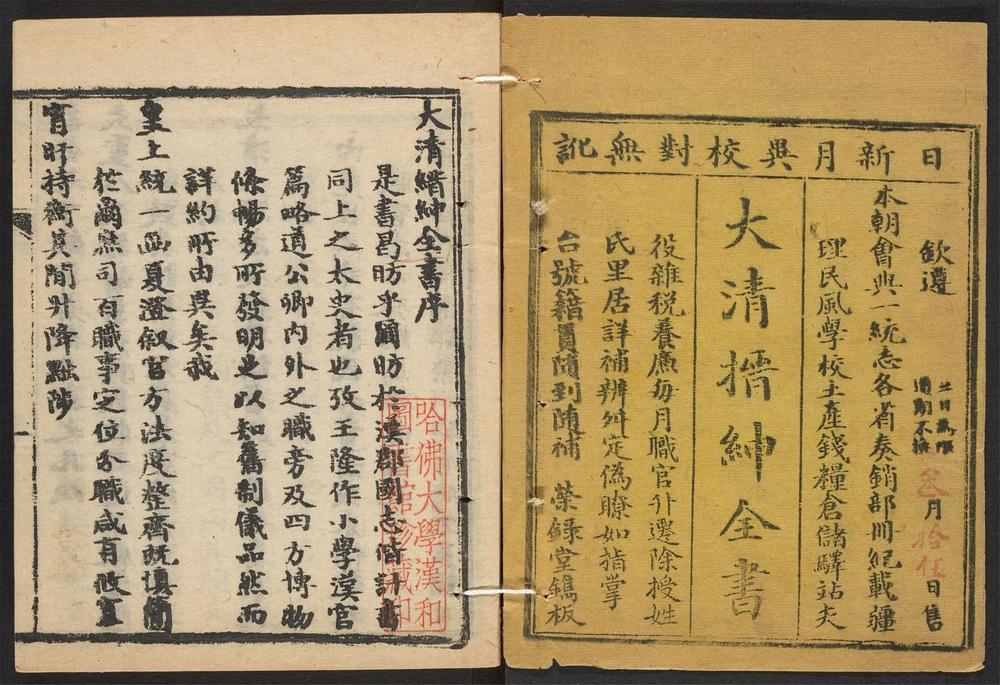 日新月異校對無訛
欽遵
叄月拾伍日售
本朝會典一統志各省奏銷部冊紀載疆
理民風學校土產錢糧倉儲驛站夫
大清搢紳全書
役雜稅養廉每月職官升遷除授姓
氏里居詳補辨舛定偽瞭如指掌
台號籍貫隨到隨補 榮錄堂鐫板
大清縉紳全書序
是書昌昉乎爾昉於漢郡國志脩計書
同上之太史者也攷王隆作小學漢官
篇略道公卿內外之職旁及四方博物
條暢多所發明足以知舊制儀品然而
詳約所由異矣我
皇上統一函夏澄叙官方法度整齊既慎簡
於爾寮司百職事定位分職咸有攸
宵旰持衡其間升降黜陟
哈佛大學漢和
圖書館珍藏印